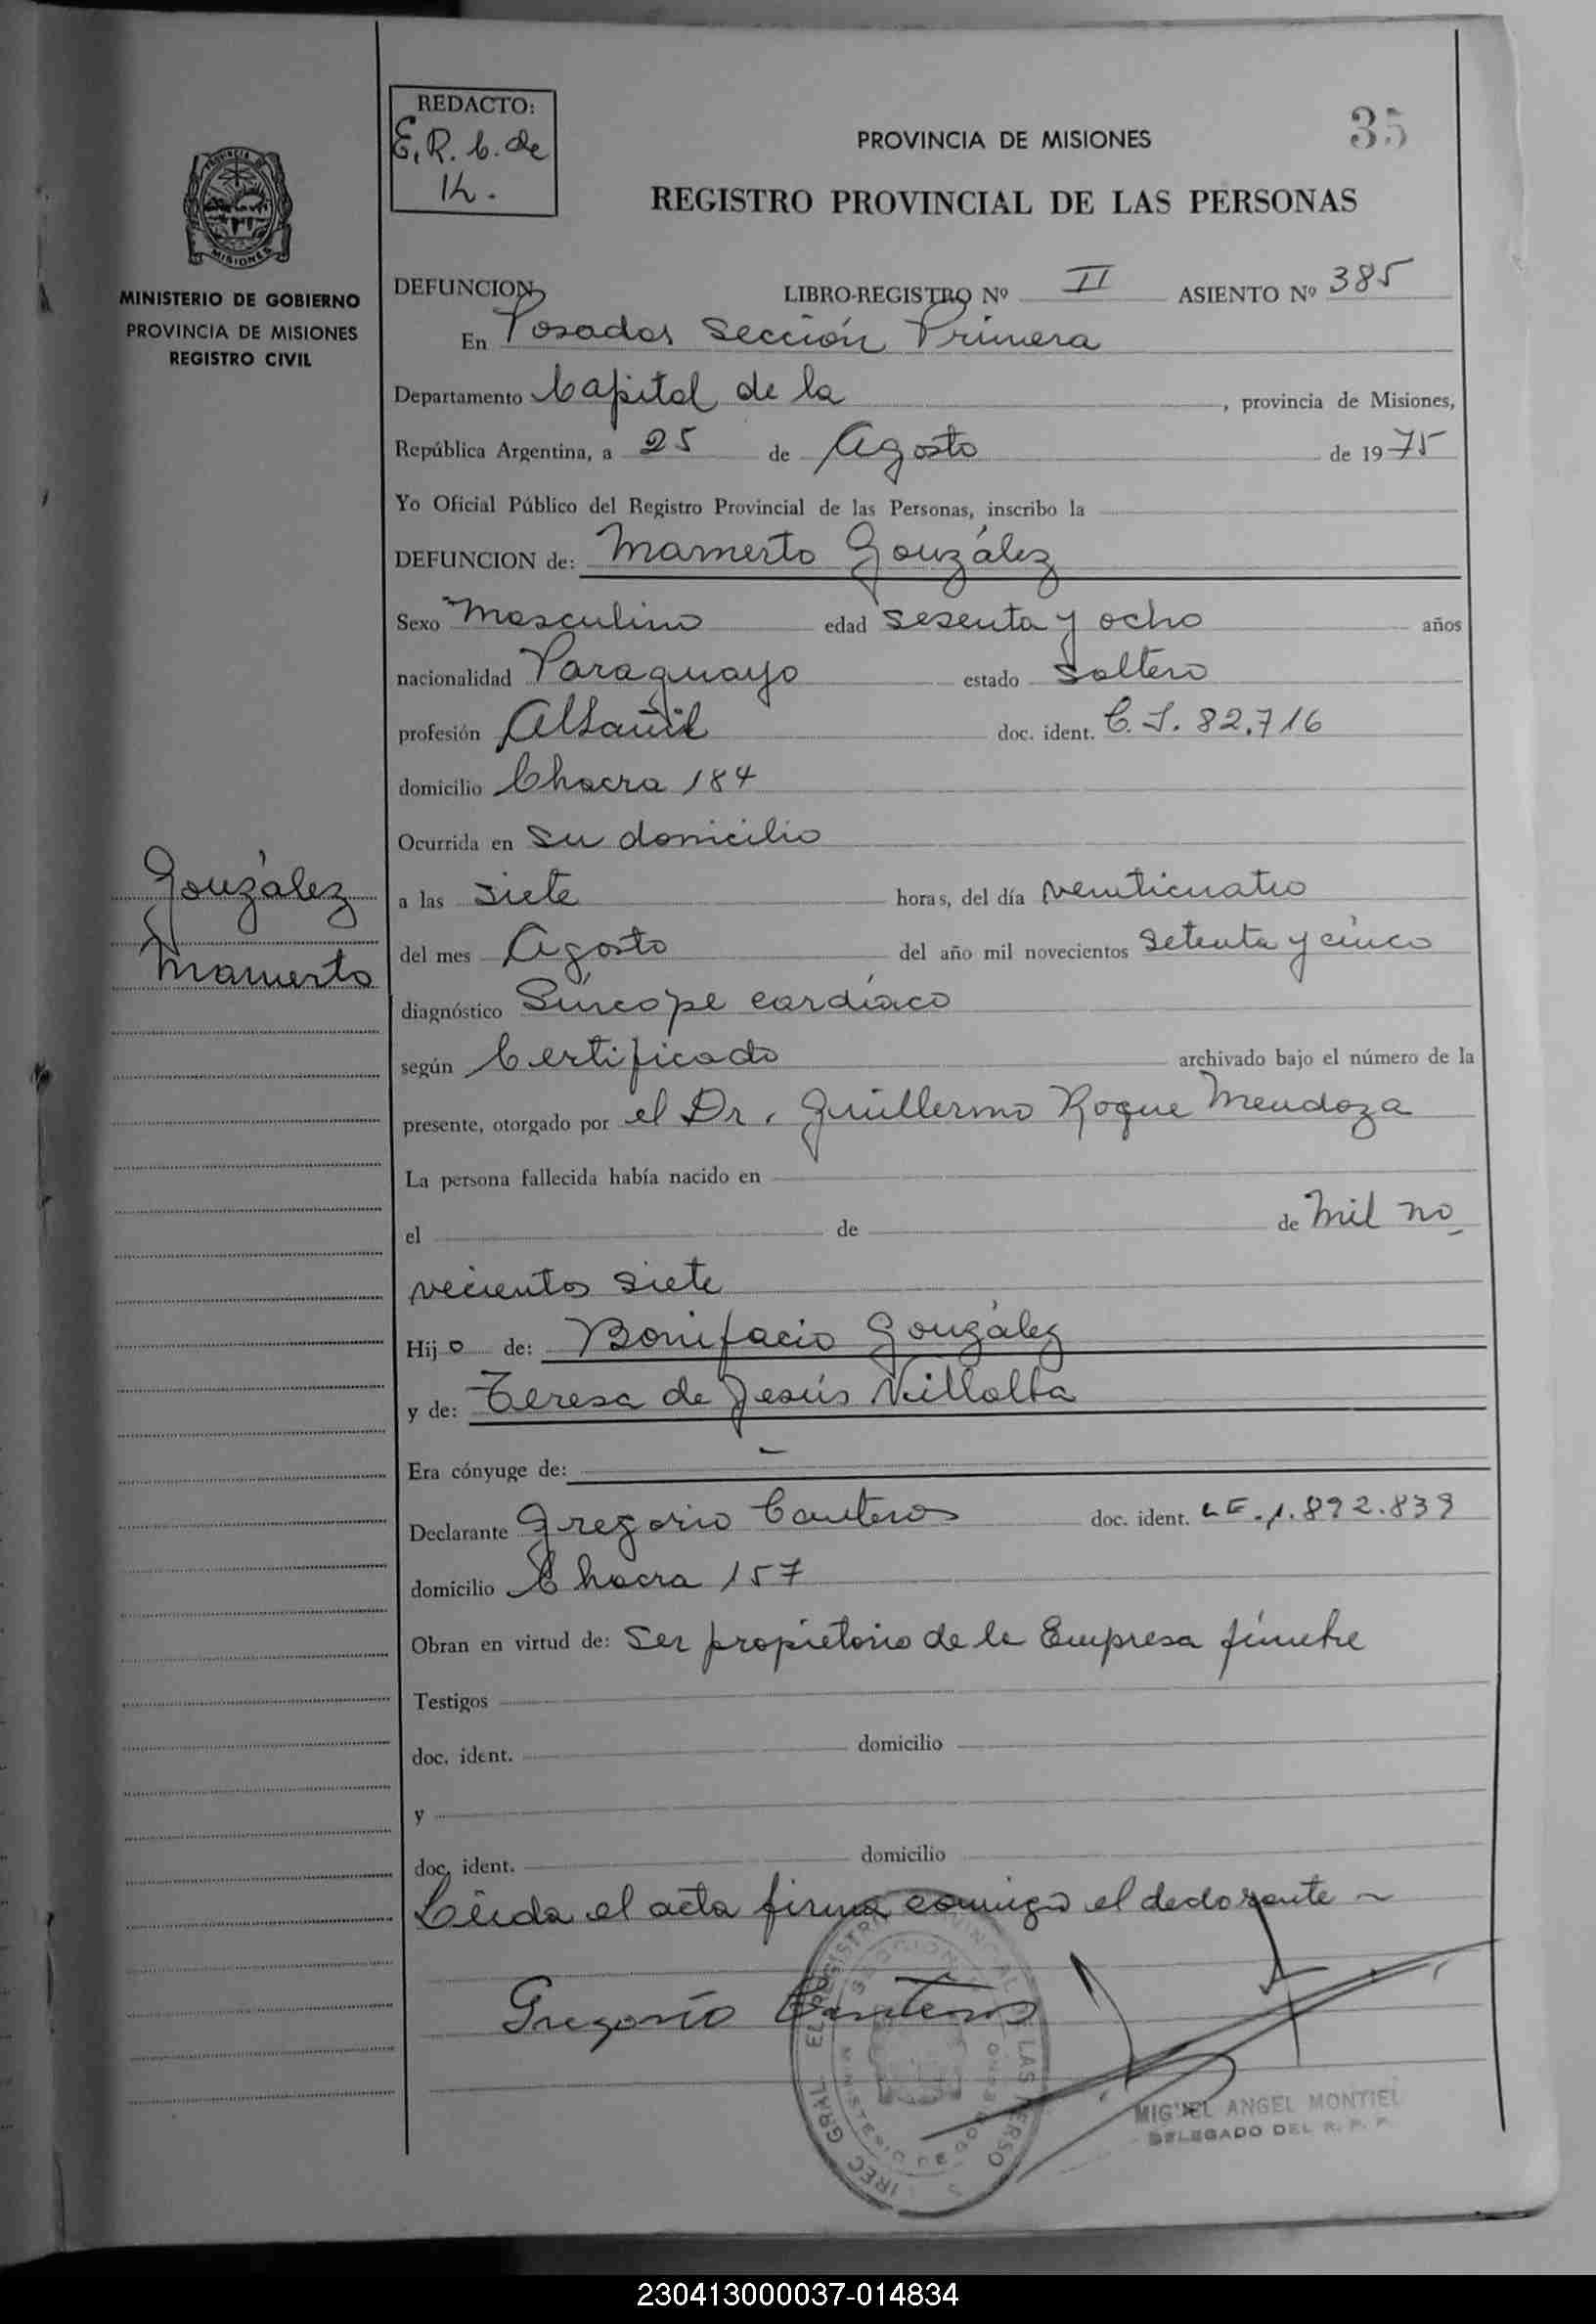 REDACTO:
E. R. C. de
K.
35
PROVINCIA DE MISIONES
REGISTRO PROVINCIAL DE LAS PERSONAS
PROVINCIA DE
MISIONES
MINISTERIO DE GOBIERNO
PROVINCIA DE MISIONES
REGISTRO CIVIL
DEFUNCION LIBRO-REGISTRO Nº II ASIENTO Nº 385
En Posadas Sección Primera
Departamento Capital de la , provincia de Misiones,
República Argentina, a 25 de Agosto de 1975
Yo Oficial Público del Registro Provincial de las Personas, inscribo la
DEFUNCION de: Mamerto González
Sexo Masculino edad sesenta y ocho años
nacionalidad Paraguayo estado Soltero
profesión Albañil doc. ident. C. I. 82.716
domicilio Chacra 184
Ocurrida en su domicilio
González
Mamerto
a las siete horas, del día veinticuatro
del mes Agosto del año mil novecientos setenta y cinco
diagnóstico Síncope cardíaco
según Certificado archivado bajo el número de la
presente, otorgado por el Dr. Guillermo Roque Mendoza
La persona fallecida había nacido en
el de de Mil no
vecientos siete
Hijo de: Bonifacio González
y de: Teresa de Jesús Villalba
Era cónyuge de: -
Declarante Gregorio Canteros doc. ident. LE. 1.892.839
domicilio Chacra 157
Obran en virtud de: Ser propietario de la Empresa fúnebre
Testigos
doc. ident. domicilio
y
doc. ident. domicilio
Leída el acta firma conmigo el declarante
Gregorio Canteros
MIGUEL ANGEL MONTIEL
DELEGADO DEL R. P. P.
230413000037-014834